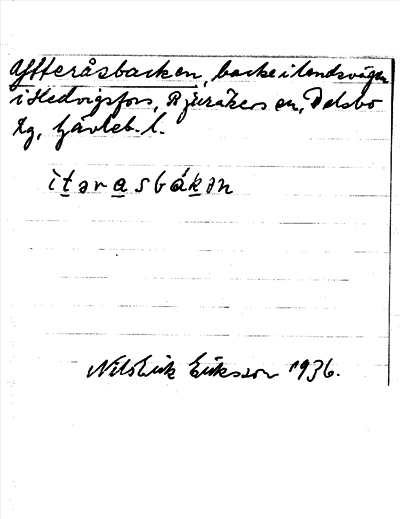 Ytteråsbacken, backe i landsvägen
i Hedvigsfors, Bjuråkers sn, Delsbo
tg, Gävleb. l.
ìt̲əra̲sbák̲ən
Nils Erik Eriksson 1936.